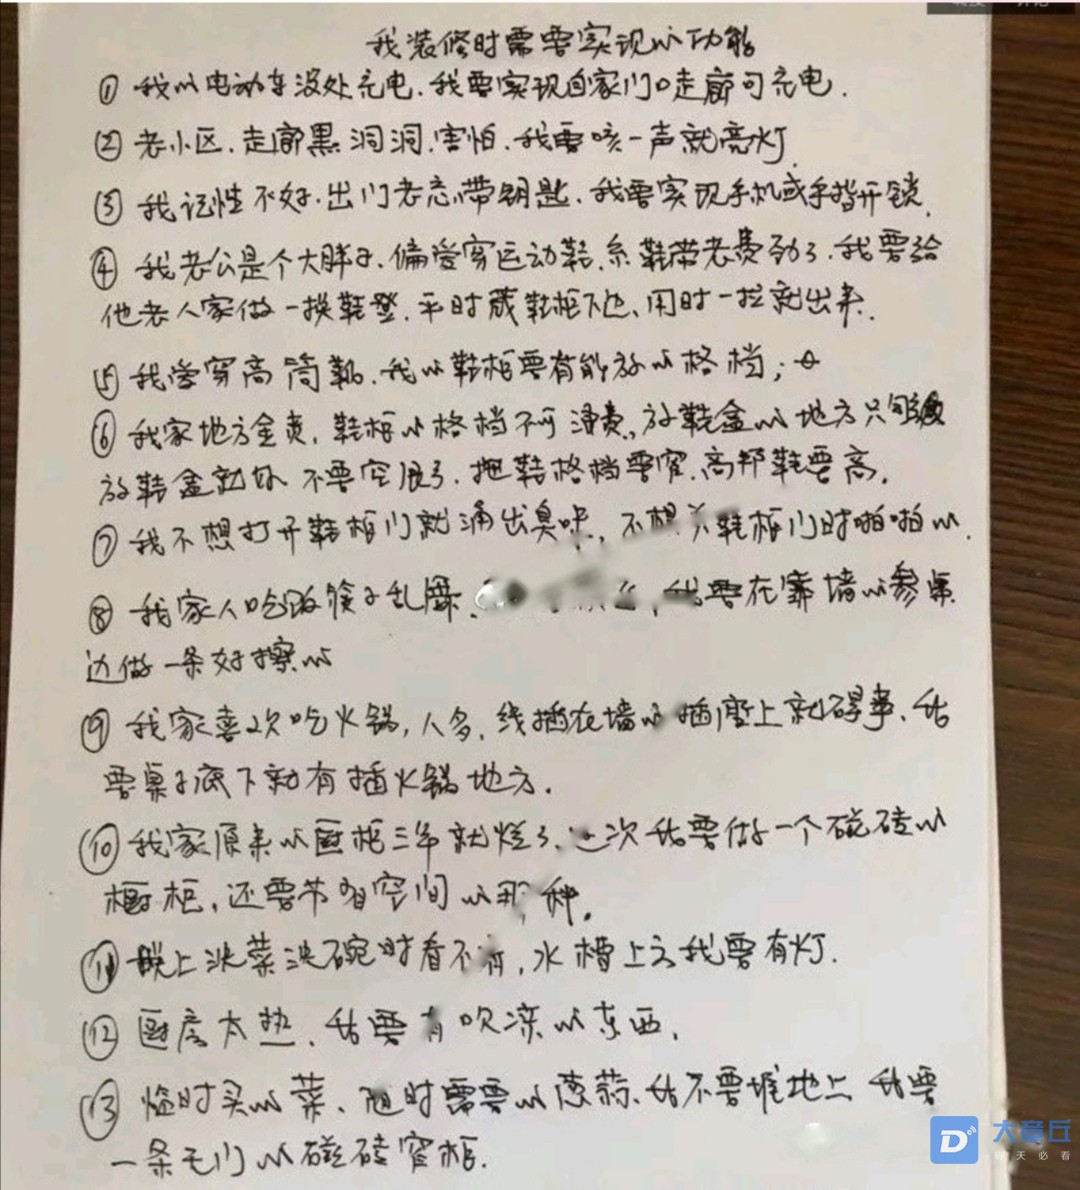 我装修时需要实现以功能
① 我以电动车没处充电.我要实现自家门口走廊可充电.
② 老小区.走廊黑洞洞.害怕.我要咳一声就亮灯.
③ 我记性不好.出门老忘带钥匙.我要实现手机或手指开锁.
④ 我老公是个大胖子.偏爱穿运动鞋.系鞋带老费劲了.我要给
他老人家做一换鞋登.平时藏鞋柜下边、用时一拉就出来.
⑤ 我爱穿高筒靴.我以鞋柜要有能放以格档;
⑥ 我家地方金贵.鞋柜以格档不可浪费.放鞋盒以地方只够
放鞋盒就好 不要空很了.拖鞋格档要窄.高邦鞋要高.
⑦ 我不想打开鞋柜门就涌出臭味,不想关鞋柜门时啪啪以.
⑧ 我家人吃饭筷子乱 我要在靠墙以参桌
边做一条好擦以
⑨ 我家喜欢吃火锅,人多.线插在墙以插座上就碍事.我
要桌子底下就有插火锅地方.
⑩ 我家原来以厨柜三年就烂了.这次我要做一个磁砖以
橱柜,还要节省空间以那种.
⑪ 晚上洗菜洗碗时看不清,水槽上方我要有灯.
⑫ 厨房太热.我要有吹凉以东西.
⑬ 临时买以菜、随时需要以葱蒜.我不要堆地上 我要
一条无门以磁砖窄柜.
大章丘
天必看